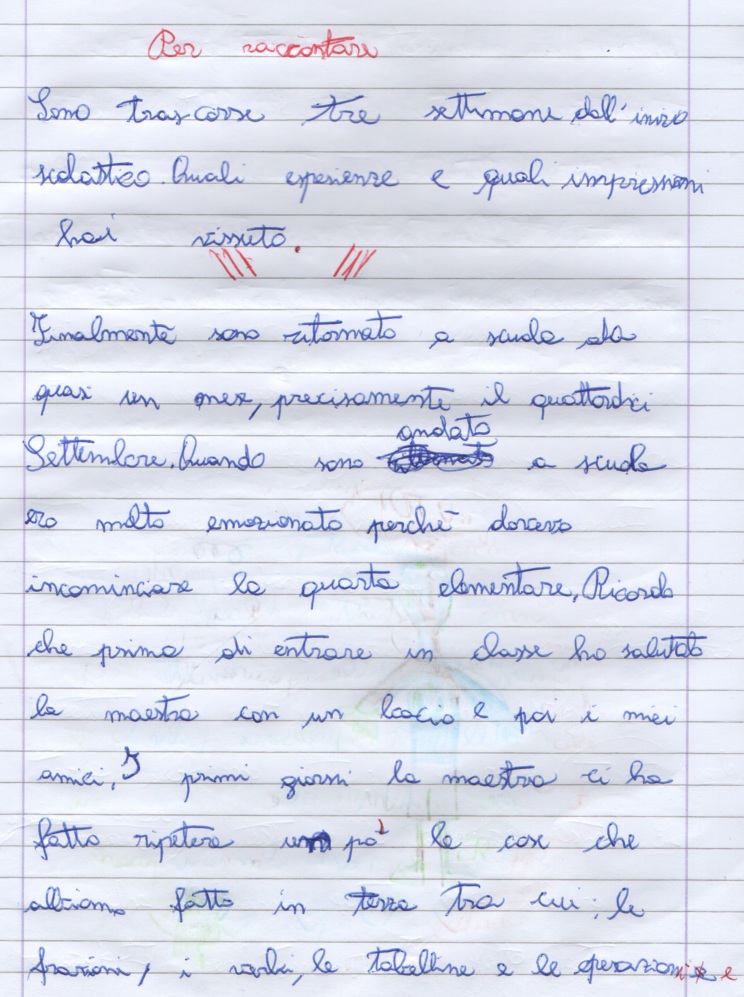 Per raccontare
Sono trascorse tre settimane dall'inizio
scolastico. Quali esperienze e quali impressioni
hai vissuto.
Finalmente sono ritornato a scuola da
quasi un mese, precisamente il quattordici
andato
Settembre. Quando sono a scuola
ero molto emozionato perchè dovevo
incominciare la quarta elementare, Ricordo
che prima di entrare in classe ho salutato
la maestra con un bacio e poi i miei
amici, I primi giorni la maestra ci ha
fatto ripetere un pò le cose che
abbiamo fatto in terza tra cui: le
frazioni, i verbi, le tabelline e le operazioni e